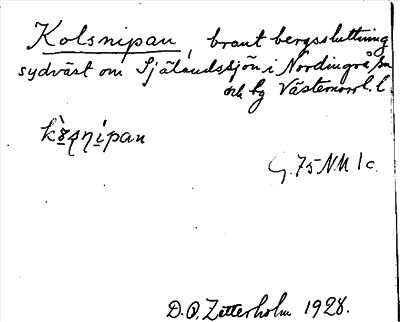 Kolsnipan, brant bergssluttning
sydväst om Själandssjön i Nordingrå sn
och by Västernorrl. l.
kòsnipan
G. 75 NM 1c.
D.O. Zetterholm 1928.